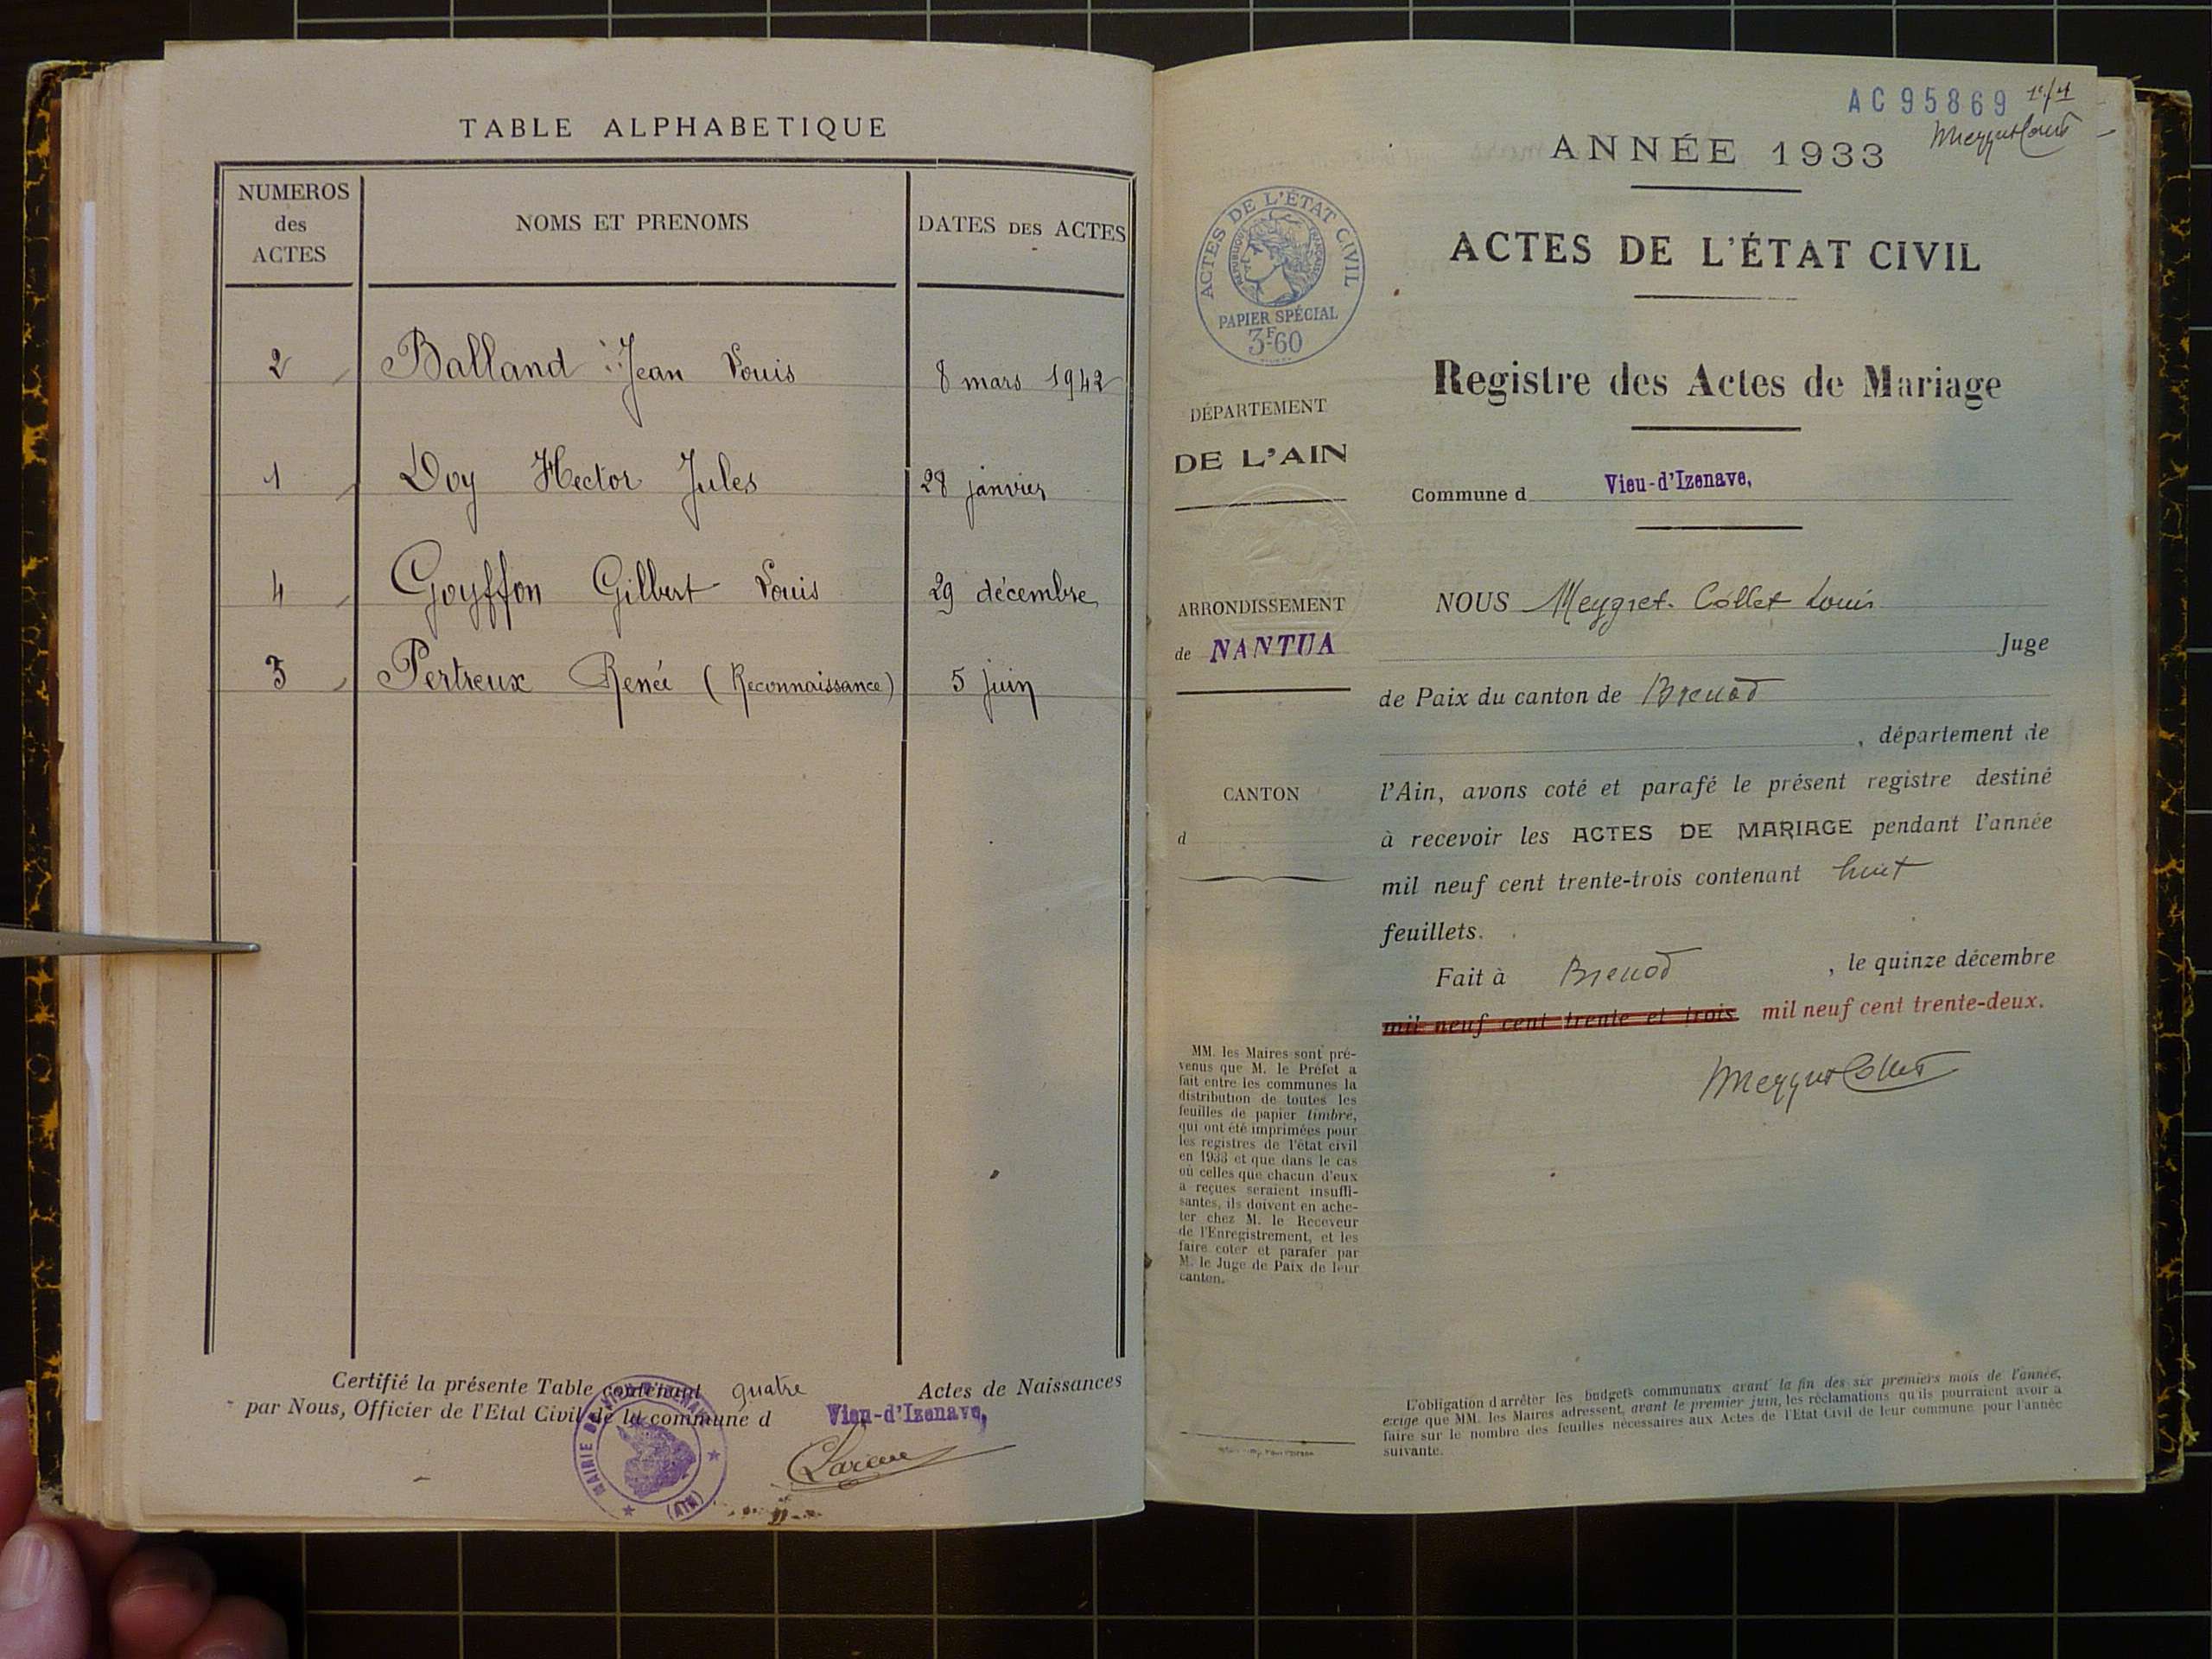 TABLE ALPHABETIQUE
NUMEROS
des
ACTES
NOMS ET PRENOMS
DATES DES ACTES
2 Balland Jean Louis 8 mars 1942
1 Doy Hector Jules 28 janvier
4 Goyffon Gilbert Louis 29 décembre
3 Pertreux Renée (Reconnaissance) 5 juin
Certifié la présente Table contenant quatre Actes de Naissances
par Nous, Officier de l'Etat Civil de la commune d Vieu-d'Izenave,
MAIRIE DE VIEU-D'IZENAVE
(AIN)
AC95869
ANNÉE 1933
ACTES DE L'ÉTAT CIVIL
RÉPUBLIQUE FRANÇAISE
PAPIER SPÉCIAL
3F60
ACTES DE L'ÉTAT CIVIL
Registre des Actes de Mariage
DÉPARTEMENT
DE L'AIN
Commune d Vieu-d'Izenave,
ARRONDISSEMENT
de NANTUA
CANTON
d
NOUS Meygret-Collet Louis
Juge
de Paix du canton de Brenod
, département de
l'Ain, avons coté et parafé le présent registre destiné
à recevoir les ACTES DE MARIAGE pendant l'année
mil neuf cent trente-trois contenant huit
feuillets.
Fait à Brenod , le quinze décembre
mil neuf cent trente et trois mil neuf cent trente-deux.
MeygretCollet
MM. les Maires sont pré-
venus que M. le Préfet a
fait entre les communes la
distribution de toutes les
feuilles de papier timbré,
qui ont été imprimées pour
les registres de l'état civil
en 1933 et que dans le cas
où celles que chacun d'eux
a reçues seraient insuffi-
santes, ils doivent en ache-
ter chez M. le Receveur
de l'Enregistrement, et les
faire coter et parafer par
M. le Juge de Paix de leur
canton.
L'obligation d'arrêter les budgets communaux avant la fin des six premiers mois de l'année,
exige que MM. les Maires adressent, avant le premier juin, les réclamations qu'ils pourraient avoir à
faire sur le nombre des feuilles nécessaires aux Actes de l'Etat Civil de leur commune pour l'année
suivante.